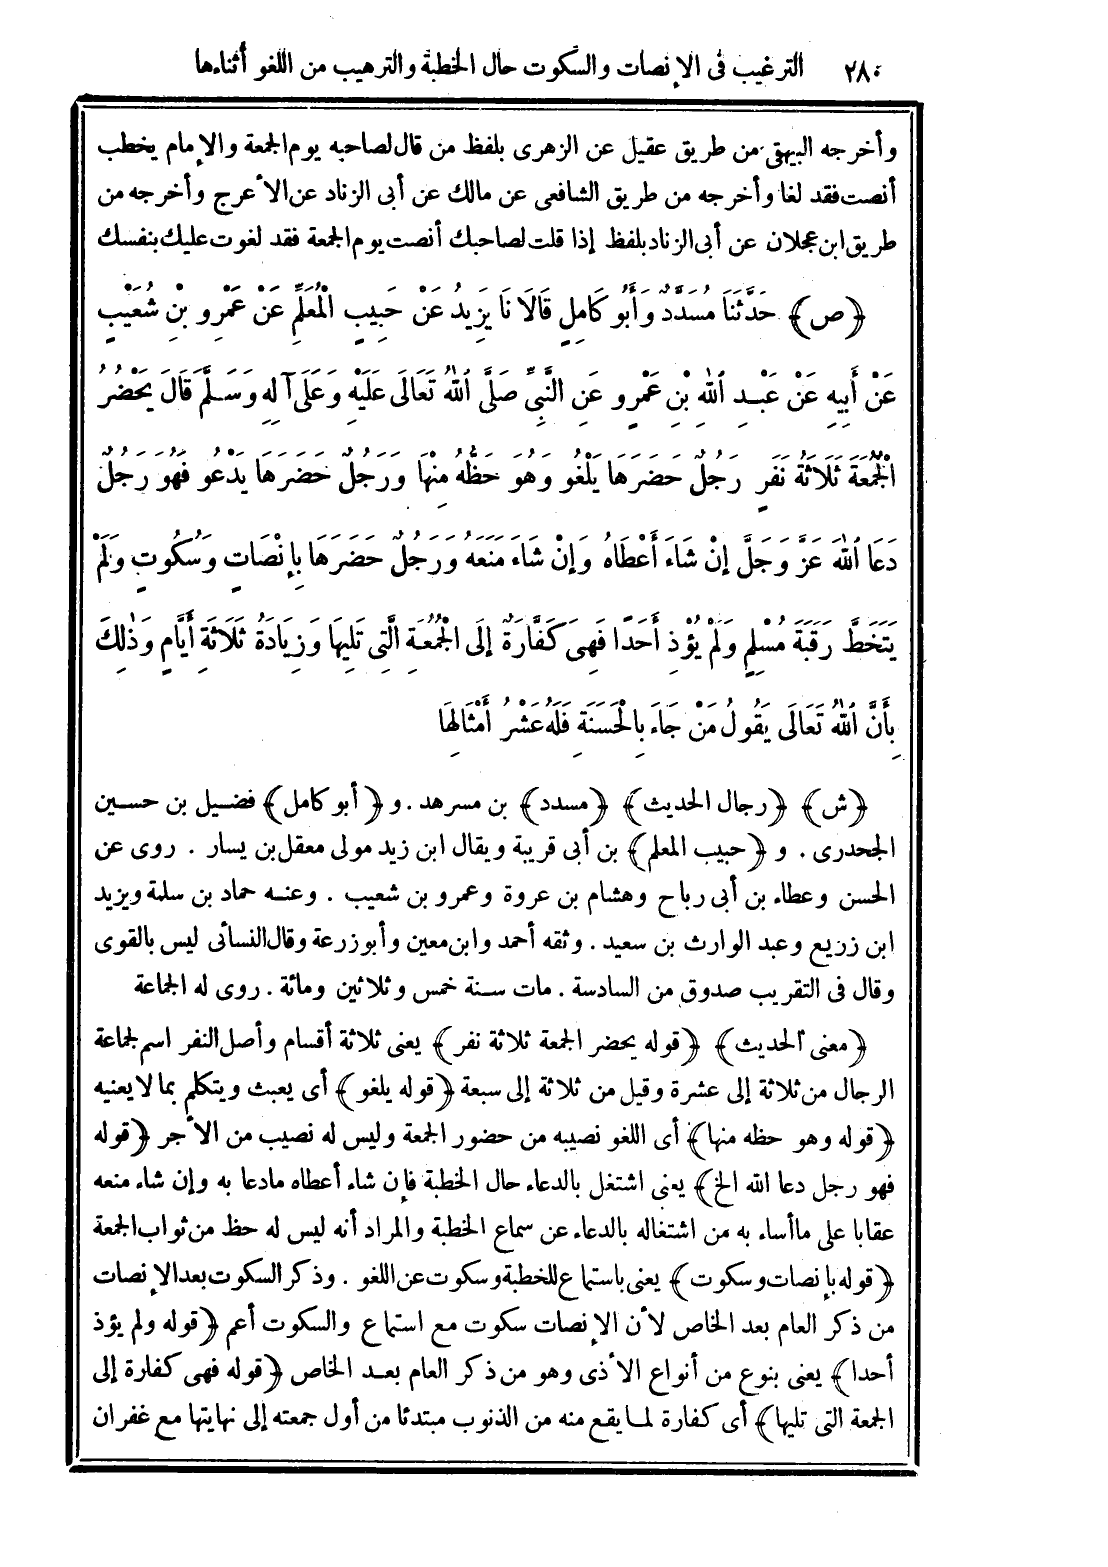 ٢٨٠ الترغيب فى الإنصات والسكوت حال الخطبة والترهيب من اللغو أثناءها
وأخرجه البيهقى من طريق عقيل عن الزهرى بلفظ من قال لصاحبه يوم الجمعة والإمام يخطب
أنصت فقد لغا وأخرجه من طريق الشافعى عن مالك عن أبى الزناد عن الأعرج وأخرجه من
طريق ابن عجلان عن أبى الزناد بلفظ إذا قلت لصاحبك أنصت يوم الجمعة فقد لغوت عليك بنفسك
﴿ص﴾ حَدَّثَنَا مُسَدَّدٌ وَأَبُو كَامِلٍ قَالَا نَا يَزِيدُ عَنْ حَبِيبٍ الْمُعَلِّمِ عَنْ عَمْرِو بْنِ شُعَيْبٍ
عَنْ أَبِيهِ عَنْ عَبْدِ اللهِ بْنِ عَمْرٍو عَنِ النَّبِىِّ صَلَّى اللهُ تَعَالَى عَلَيْهِ وَعَلَى آلِهِ وَسَلَّمَ قَالَ يَحْضُرُ
الْجُمُعَةَ ثَلَاثَةُ نَفَرٍ رَجُلٌ حَضَرَهَا يَلْغُو وَهُوَ حَظُّهُ مِنْهَا وَرَجُلٌ حَضَرَهَا يَدْعُو فَهُوَ رَجُلٌ
دَعَا اللهَ عَزَّ وَجَلَّ إِنْ شَاءَ أَعْطَاهُ وَإِنْ شَاءَ مَنَعَهُ وَرَجُلٌ حَضَرَهَا بِإِنْصَاتٍ وَسُكُوتٍ وَلَمْ
يَتَخَطَّ رَقَبَةَ مُسْلِمٍ وَلَمْ يُؤْذِ أَحَدًا فَهِىَ كَفَّارَةٌ إِلَى الْجُمُعَةِ الَّتِى تَلِيهَا وَزِيَادَةُ ثَلَاثَةِ أَيَّامٍ وَذَلِكَ
بِأَنَّ اللهَ تَعَالَى يَقُولُ مَنْ جَاءَ بِالْحَسَنَةِ فَلَهُ عَشْرُ أَمْثَالِهَا
﴿ش﴾ ﴿رجال الحديث﴾ ﴿مسدد﴾ بن مسرهد. و ﴿أبو كامل﴾ فضيل بن حسين
الجحدرى. و ﴿حبيب المعلم﴾ بن أبى قريبة ويقال ابن زيد مولى معقل بن يسار. روى عن
الحسن وعطاء بن أبى رباح وهشام بن عروة وعمرو بن شعيب. وعنه حماد بن سلمة ويزيد
ابن زريع وعبد الوارث بن سعيد. وثقه أحمد وابن معين وأبو زرعة وقال النسائى ليس بالقوى
وقال فى التقريب صدوق من السادسة. مات سنة خمس وثلاثين ومائة. روى له الجماعة
﴿معنى الحديث﴾ ﴿قوله يحضر الجمعة ثلاثة نفر﴾ يعنى ثلاثة أقسام وأصل النفر اسم لجماعة
الرجال من ثلاثة إلى عشرة وقيل من ثلاثة إلى سبعة ﴿قوله يلغو﴾ أى يعبث ويتكلم بما لا يعنيه
﴿قوله وهو حظه منها﴾ أى اللغو نصيبه من حضور الجمعة وليس له نصيب من الأجر ﴿قوله
فهو رجل دعا الله الخ﴾ يعنى اشتغل بالدعاء حال الخطبة فإن شاء أعطاه مادعا به وإن شاء منعه
عقابا على ما أساء به من اشتغاله بالدعاء عن سماع الخطبة والمراد أنه ليس له حظ من ثواب الجمعة
﴿قوله بإنصات وسكوت﴾ يعنى باستماع للخطبة وسكوت عن اللغو. وذكر السكوت بعد الإنصات
من ذكر العام بعد الخاص لأن الإنصات سكوت مع استماع والسكوت أعم ﴿قوله ولم يؤذ
أحدا﴾ يعنى بنوع من أنواع الأذى وهو من ذكر العام بعد الخاص ﴿قوله فهى كفارة إلى
الجمعة التى تليها﴾ أى كفارة لما يقع منه من الذنوب مبتدئا من أول جمعته إلى نهايتها مع غفران